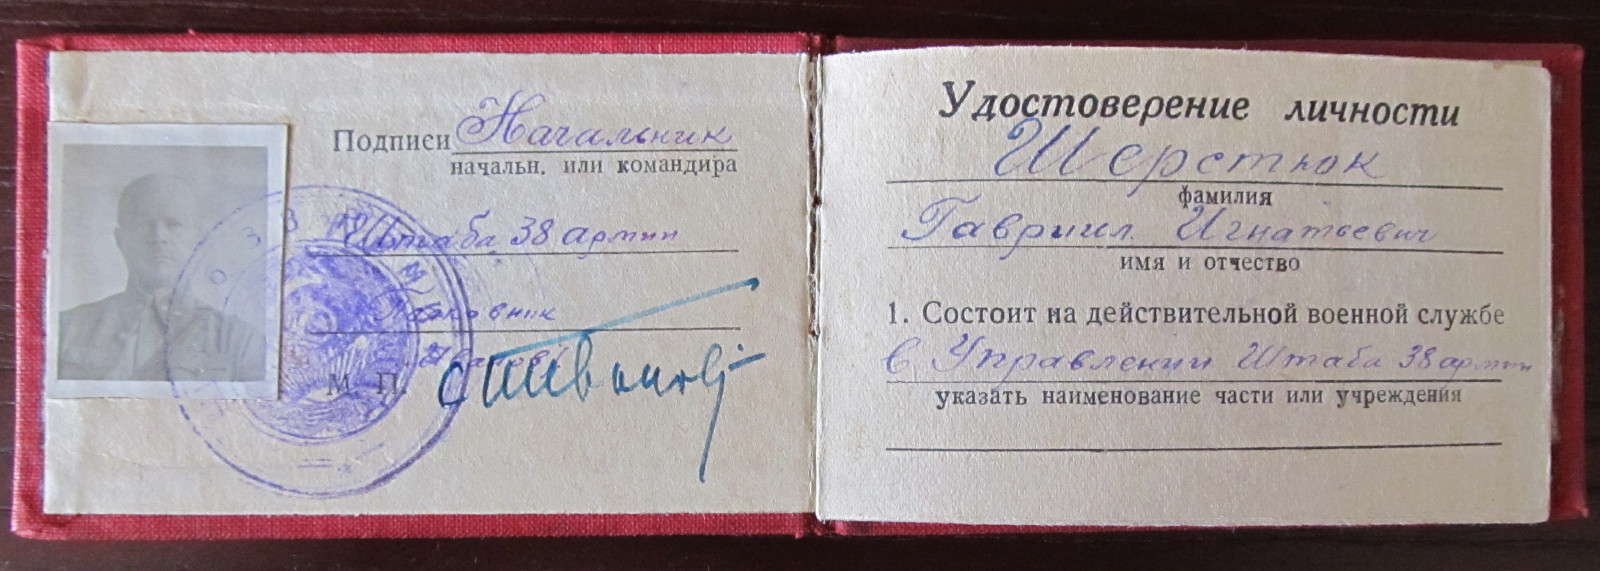 Подписи Начальник
начальн. или командира
Штаба 38 армии
Полковник
Иванов
М. П.
Удостоверение личности
Шерстюк
фамилия
Гавриил Игнатьевич
имя и отчество
1. Состоит на действительной военной службе
в Управлении Штаба 38 армии
указать наименование части или учреждения